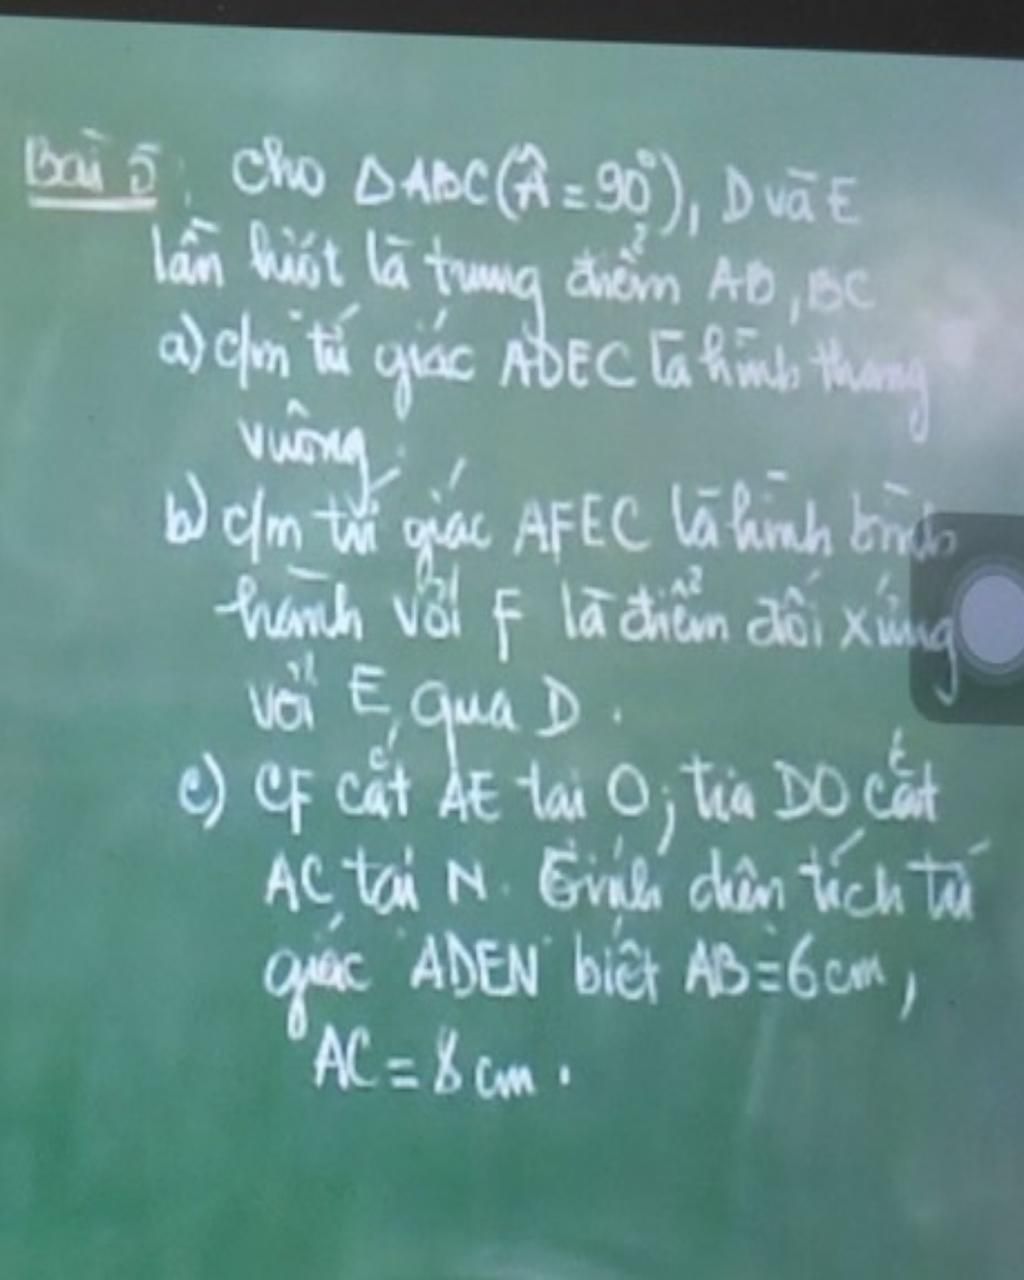 Bài 5: Cho ΔABC (Â = 90°), D và E
lần lượt là trung điểm AB, BC
a) c/m tứ giác ADEC là hình thang
vuông.
b) c/m tứ giác AFEC là hình bình
hành với F là điểm đối xứng
với E qua D.
c) CF cắt AE tại O; tia DO cắt
AC tại N. Tính diện tích tứ
giác ADEN biết AB = 6cm,
AC = 8cm.